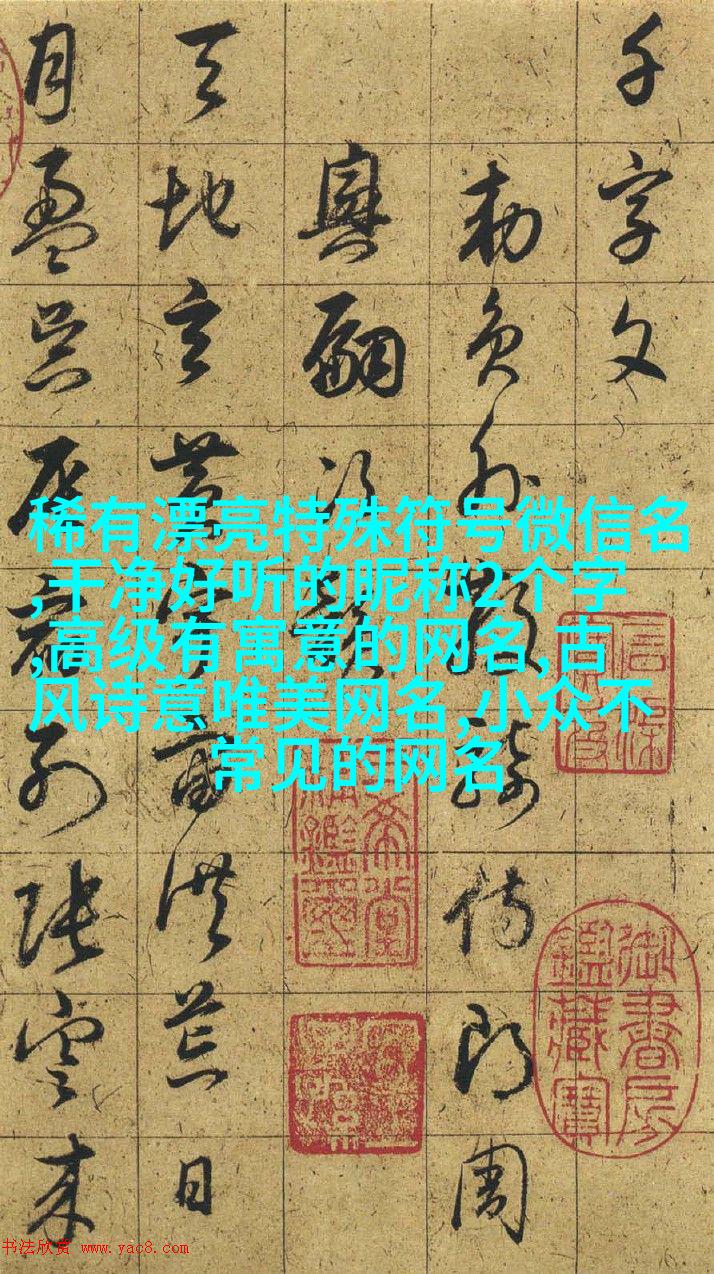 千字文
勅員外散騎侍郎周
興嗣次韻
天地玄黃宇宙洪荒日
月盈昃辰宿列張寒來
稀有漂亮特殊符号微信名
,干净好听的昵称2个字
,高级有寓意的网名,古
风诗意唯美网名,小众不
常见的网名
御書房
鑑藏寶
书法欣赏 www.yac8.com